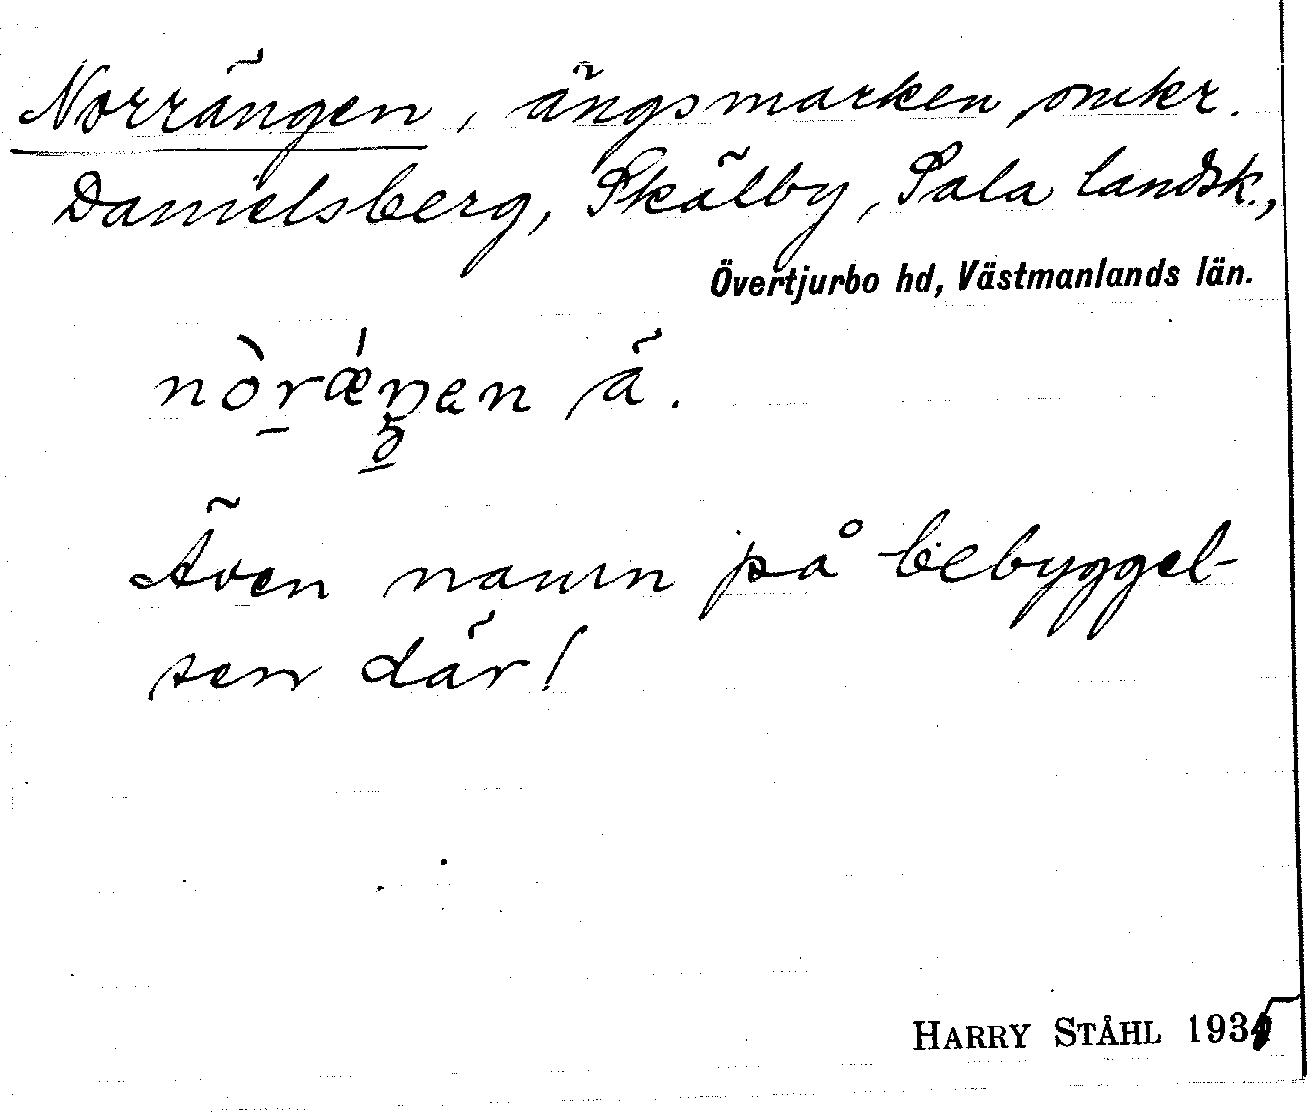 Norrängen, ängsmarken omkr.
Danielsberg, Skälby, Sala landsk.,
Övertjurbo hd, Västmanlands län.
nòrǽŋen ä.
Även namn på bebyggel-
sen där!
HARRY STÅHL 1935